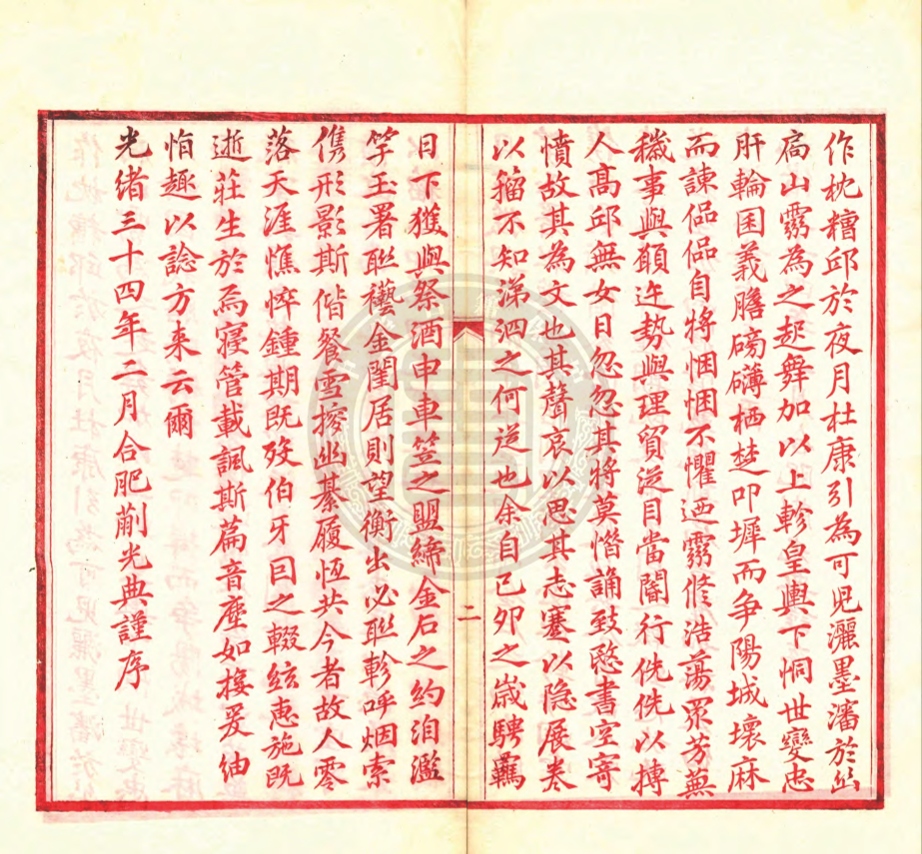 作枕糟邱於夜月杜康引為可児灑墨瀋於幽
扃山靈為之起舞加以上軫皇輿下恫世變忠
肝輪囷義膽磅礴栖楚叩墀而争陽城壞麻
而諫侃侃自將悃悃不懼迺靈脩浩蕩眾芳蕪
穢事與願迕勢與理貿泛目當閽行侁侁以摶
人高邱無女日忽忽其將莫憯誦致愍書空寄
憤故其為文也其聲哀以思其志蹇以隐展卷
以籀不知涕泗之何從也余自己卯之歲騁羈
日下獲與祭酒申車笠之盟締金石之約洎濫
竽玉署聯𧂐金閨居則望衡出必聯軫呼烟索
儁形影斯偕餐雪摉幽綦履恆共今者故人零
落天涯憔悴鍾期既歿伯牙因之輟絃惠施既
逝莊生於焉寑管載諷斯篇音塵如接爰紬
恉趣以諗方来云爾
光緒三十四年二月合肥蒯光典謹序
二